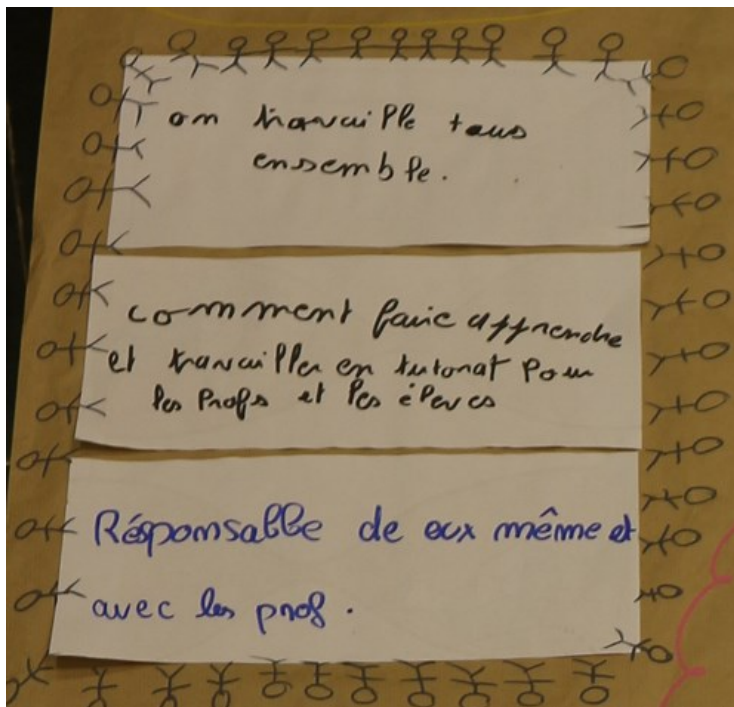 on travaille tous
ensemble.
comment faire apprendre
et travailler en tutorat pour
les profs et les élèves
Résponsable de eux même et
avec les prof.